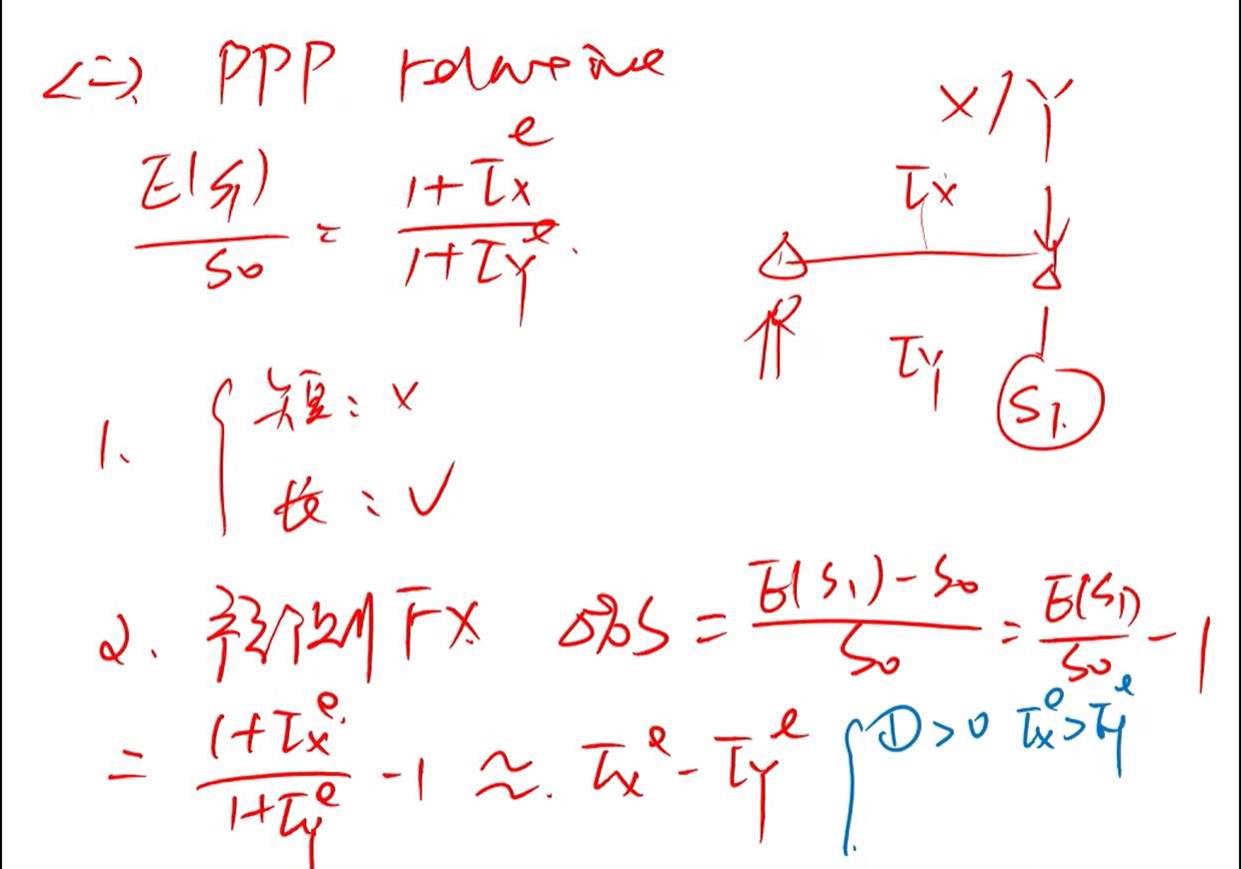 <二>. PPP relative
X/Y
E(S1)/S0 = (1+Ix^e)/(1+Iy^e).
Ix
Iy
S1.
1. { 短: ×
长: √
2. 预测 FX Δ%S = (E(S1)-S0)/S0 = E(S1)/S0 - 1
= (1+Ix^e)/(1+Iy^e) - 1 ≈. Ix^e - Iy^e { ① >0 Ix^e > Iy^e